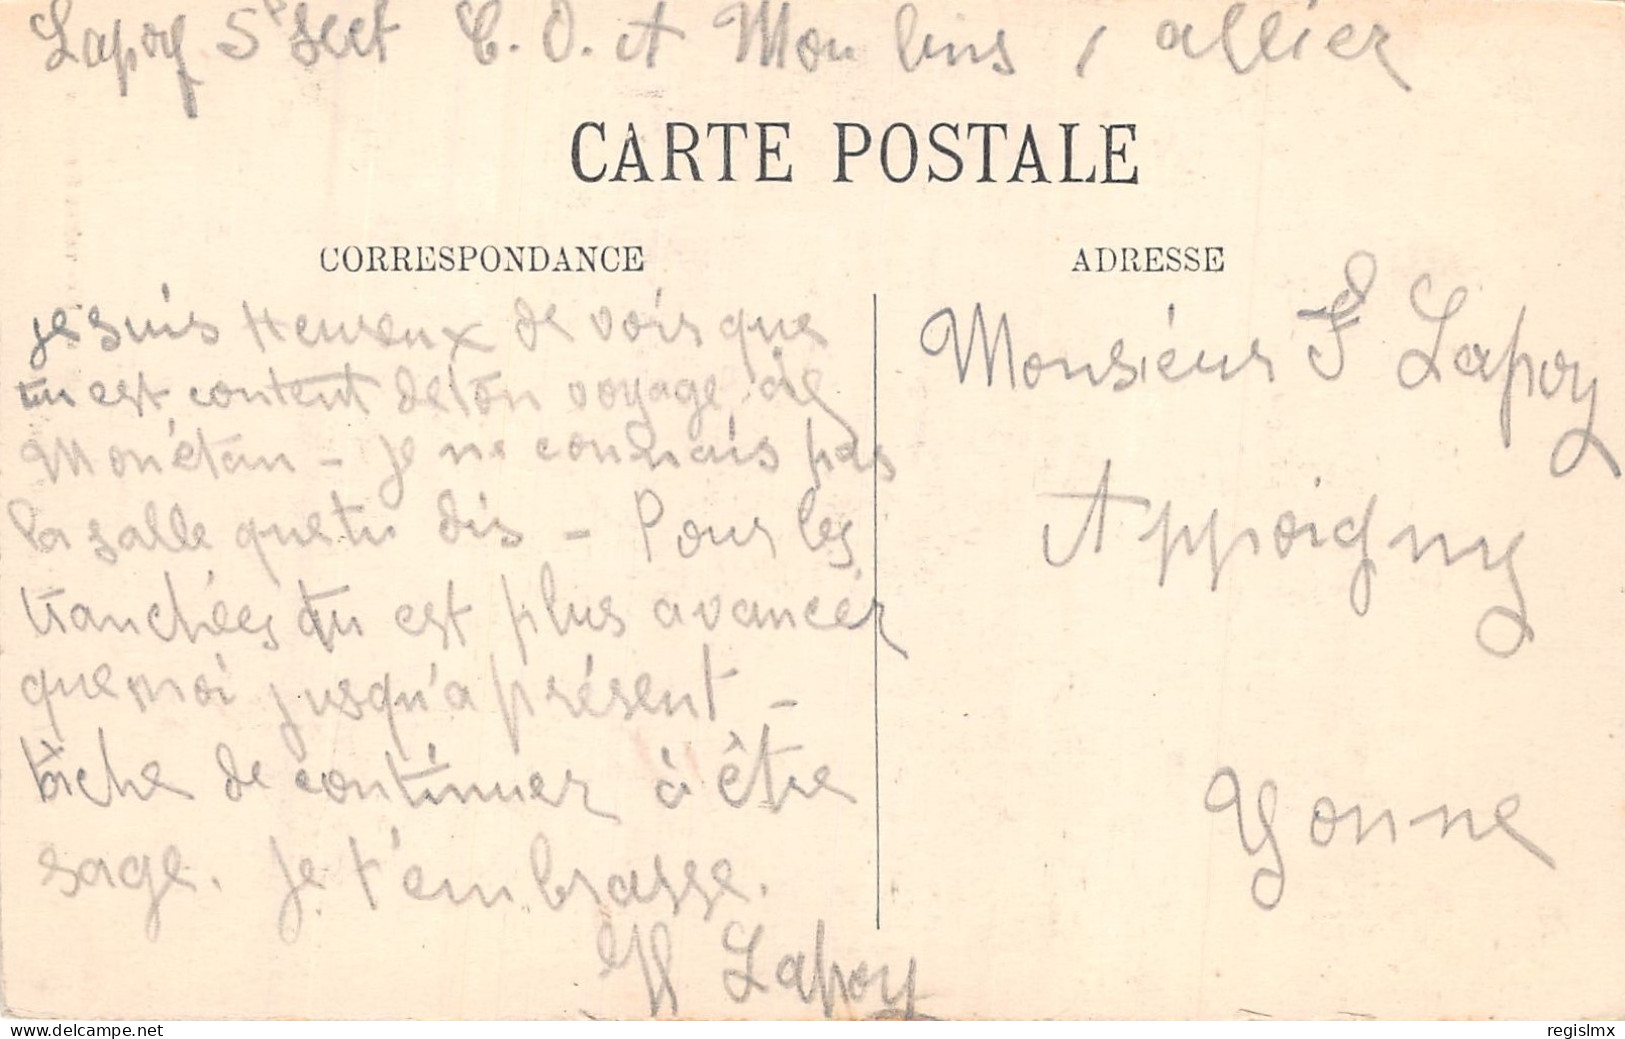 Lapoy 5e Sect C.O.A Moulins, allier
CARTE POSTALE
CORRESPONDANCE
ADRESSE
je suis Heureux de voir que
tu est content de ton voyage de
Monétau - je ne connais pas
la salle que tu dis - Pour les
tranchées tu est plus avancér
que moi jusqu'a présent -
tâche de continuer à être
sage. Je t'embrasse.
H Lapoy
Monsieur F Lapoy
Appoigny
Yonne
delcampe.net
regislmx